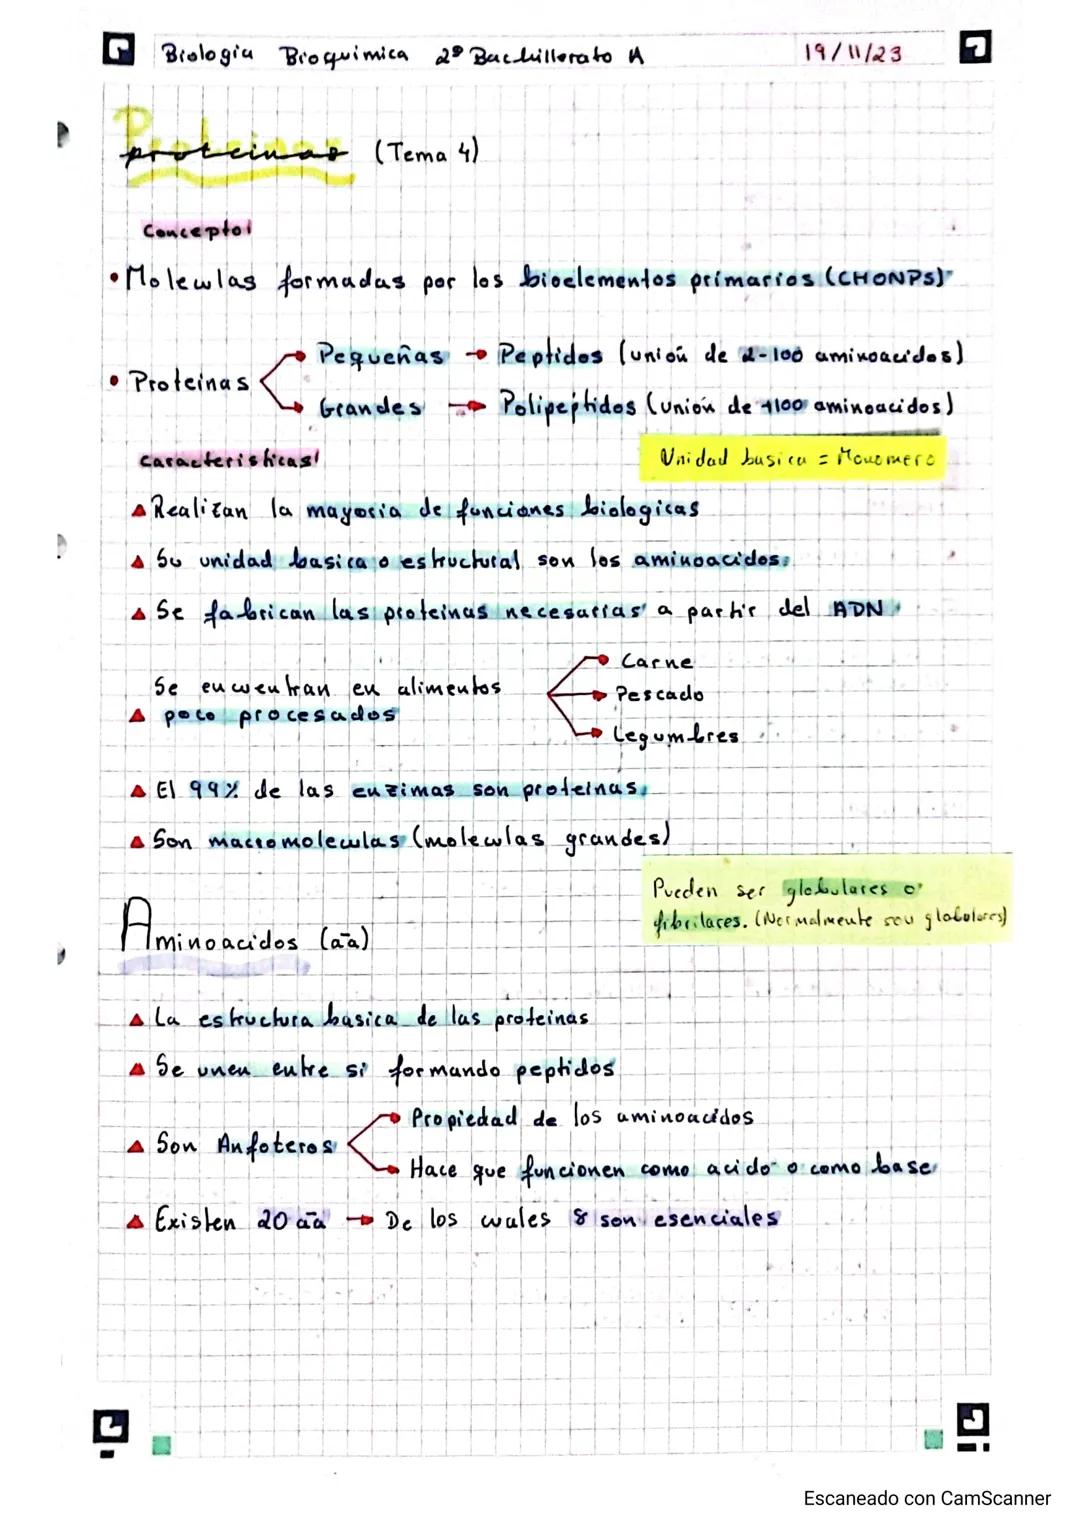 Biologia Bioquimica 2º Bachillerato A 19/11/23
Proteinas
proteinas (Tema 4)
Concepto:
• Moleculas formadas por los bioelementos primarios (CHONPS)
Pequeñas → Peptidos (unión de 2-100 aminoacidos)
• Proteinas
Grandes → Polipeptidos (unión de +100 aminoacidos)
caracteristicas:
Unidad basica = Monomero
▲ Realizan la mayoria de funciones biologicas
▲ Su unidad basica o estructural son los aminoacidos.
▲ Se fabrican las proteinas necesarias a partir del ADN
Carne
Se encuentran en alimentos
Pescado
▲ poco procesados
Legumbres
▲ El 99% de las enzimas son proteinas.
▲ Son macromoleculas (moleculas grandes)
Pueden ser globulares o
fibrilares. (Normalmente son globulares)
Aminoacidos (aa)
▲ La estructura basica de las proteinas
▲ Se unen entre si formando peptidos
Propiedad de los aminoacidos
▲ Son Anfoteros
Hace que funcionen como acido o como base
▲ Existen 20 aa → De los cuales 8 son esenciales
Escaneado con CamScanner